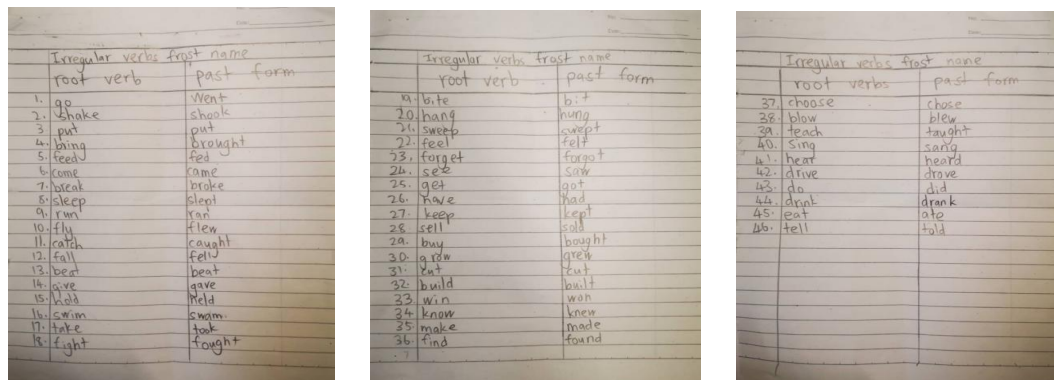 Irregular verbs frost name
root verb past form
1. go went
2. shake shook
3 put put
4. bring brought
5. feed fed
6. come came
7. break broke
8. sleep slept
9. run ran
10. fly flew
11. catch caught
12. fall fell
13. beat beat
14. give gave
15. hold held
16. swim swam.
17. take took
18. fight fought
Irregular verbs frost name
root verb past form
19. bite bit
20. hang hung
21. sweep swept
22. feel felt
23. forget forgot
24. see saw
25. get got
26. have had
27. keep kept
28 sell sold
29. buy bought
30. grow grew
31. cut cut
32. build built
33 win won
34 know knew
35 make made
36. find found
Irregular verbs frost name
root verbs past form
37. choose chose
38. blow blew
39. teach taught
40. sing sang
41. hear heard
42. drive drove
43. do did
44. drink drank
45. eat ate
46. tell told